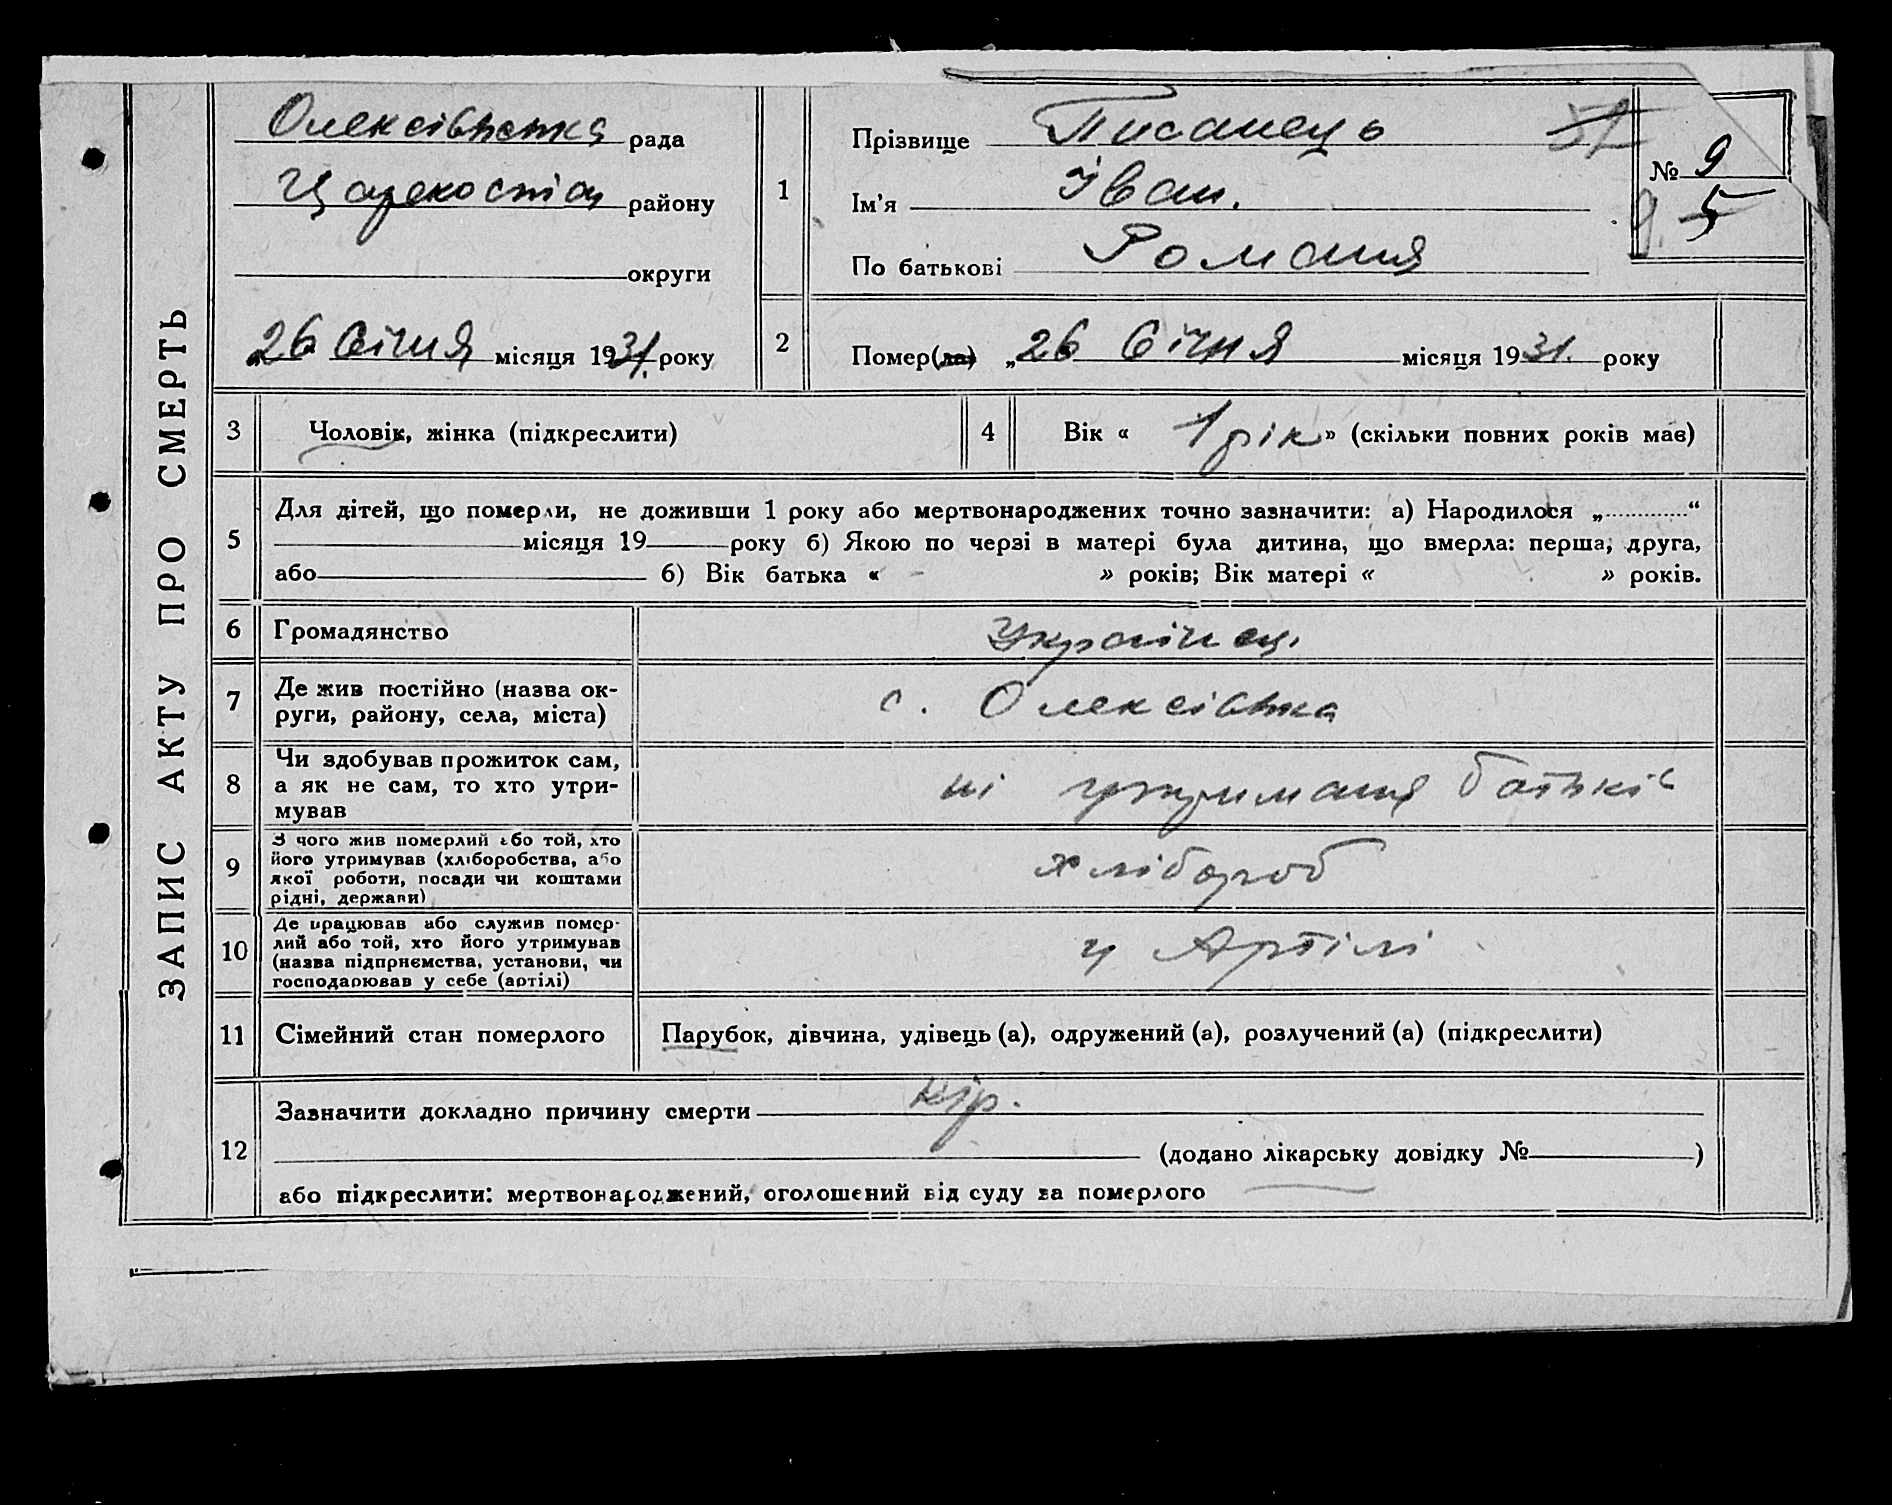 ЗАПИС АКТУ ПРО СМЕРТЬ
Олексівська рада
району
округи
„26 Січня місяця 1931. року
1
Прізвище Писанець
Ім’я Іван.
По батькові Романів
№ 9
5
2
Помер(ла) „26 Січня місяця 1931. року
3 Чоловік, жінка (підкреслити)
4 Вік « 1 рік » (скільки повних років мав)
5
Для дітей, що померли, не доживши 1 року або мертвонароджених точно зазначити: а) Народилося „............“
місяця 19 року б) Якою по черзі в матері була дитина, що вмерла: перша, друга,
або б) Вік батька « – » років; Вік матері « » років.
6 Громадянство Українец.
7
Де жив постійно (назва ок-
руги, району, села, міста)
с. Олексівка
8
Чи здобував прожиток сам,
а як не сам, то хто утри-
мував
ні утриманя батьків
9
З чого жив померлий або той, хто
його утримував (хліборобства, або
якої роботи, посади чи коштами
рідні, держави)
хлібороб
10
Де працював або служив помер-
лий або той, хто його утримував
(назва підприємства, установи, чи
господарював у себе (артілі)
у Артілі
11 Сімейний стан померлого
Парубок, дівчина, удівець (а), одружений (а), розлучений (а) (підкреслити)
12
Зазначити докладно причину смерти кір.
(додано лікарську довідку № )
або підкреслити: мертвонароджений, оголошений від суду за померлого